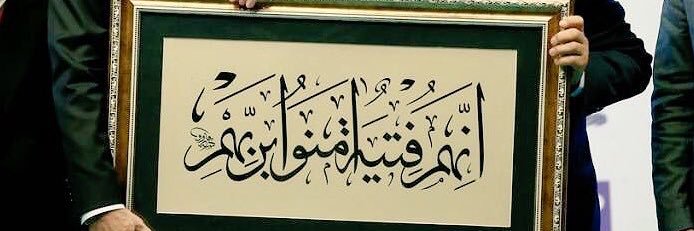 إنهم فتية آمنوا بربهم